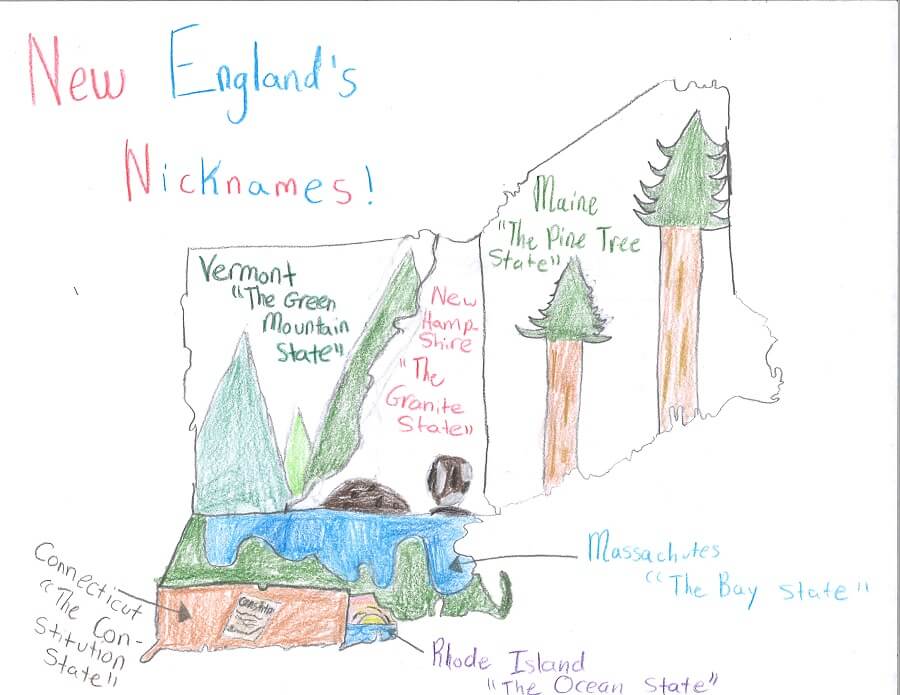 New England's
Nicknames!
Maine
"The Pine Tree
State"
Vermont
"The Green
Mountain
State"
New
Hamp-
Shire
"The
Granite
State"
Massachutes
"The Bay State"
Connecticut
"The Con-
Stitution
State"
Rhode Island
"The Ocean State"